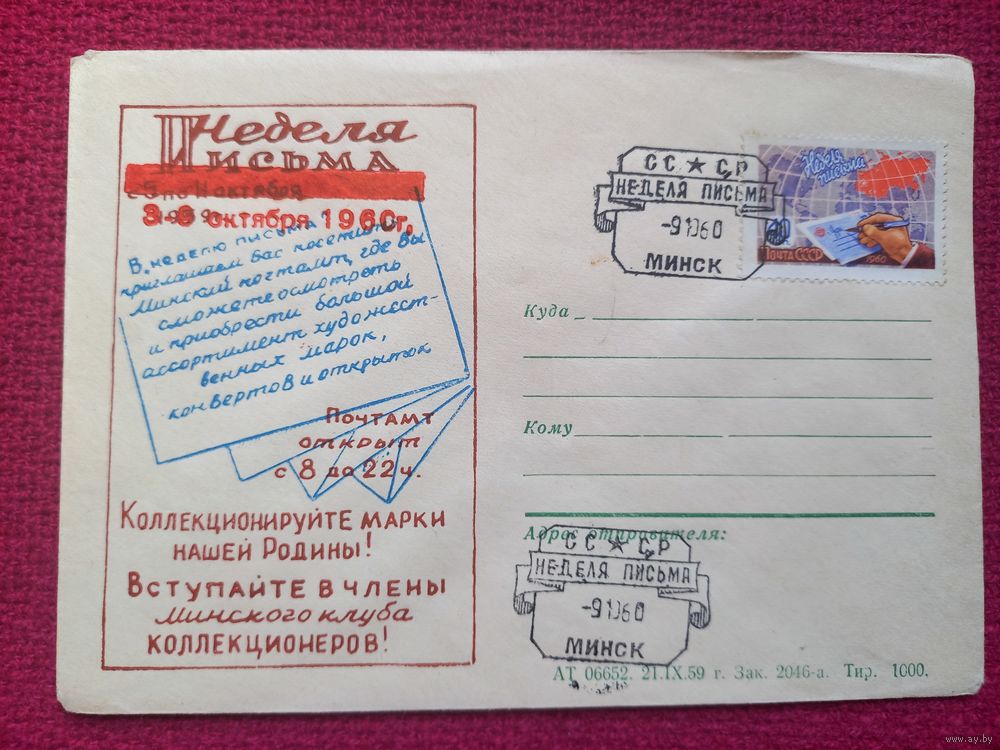 Неделя
Письма
3-9 октября 1960г.
В неделю письма
приглашаем Вас посетить
Минский почтамт, где Вы
сможете осмотреть
и приобрести большой
ассортимент художест-
венных марок,
конвертов и открыток
Почтамт
открыт
с 8 до 22 ч.
Коллекционируйте марки
нашей Родины!
Вступайте в члены
Минского клуба
коллекционеров!
СС★СР
НЕДЕЛЯ ПИСЬМА
-91060
МИНСК
Неделя
письма
ПОЧТА СССР
1960
Куда
Кому
Адрес отправителя:
СС★СР
НЕДЕЛЯ ПИСЬМА
-91060
МИНСК
АТ 06652. 21.IX.59 г. Зак. 2046-а. Тир. 1000.
www.ay.by